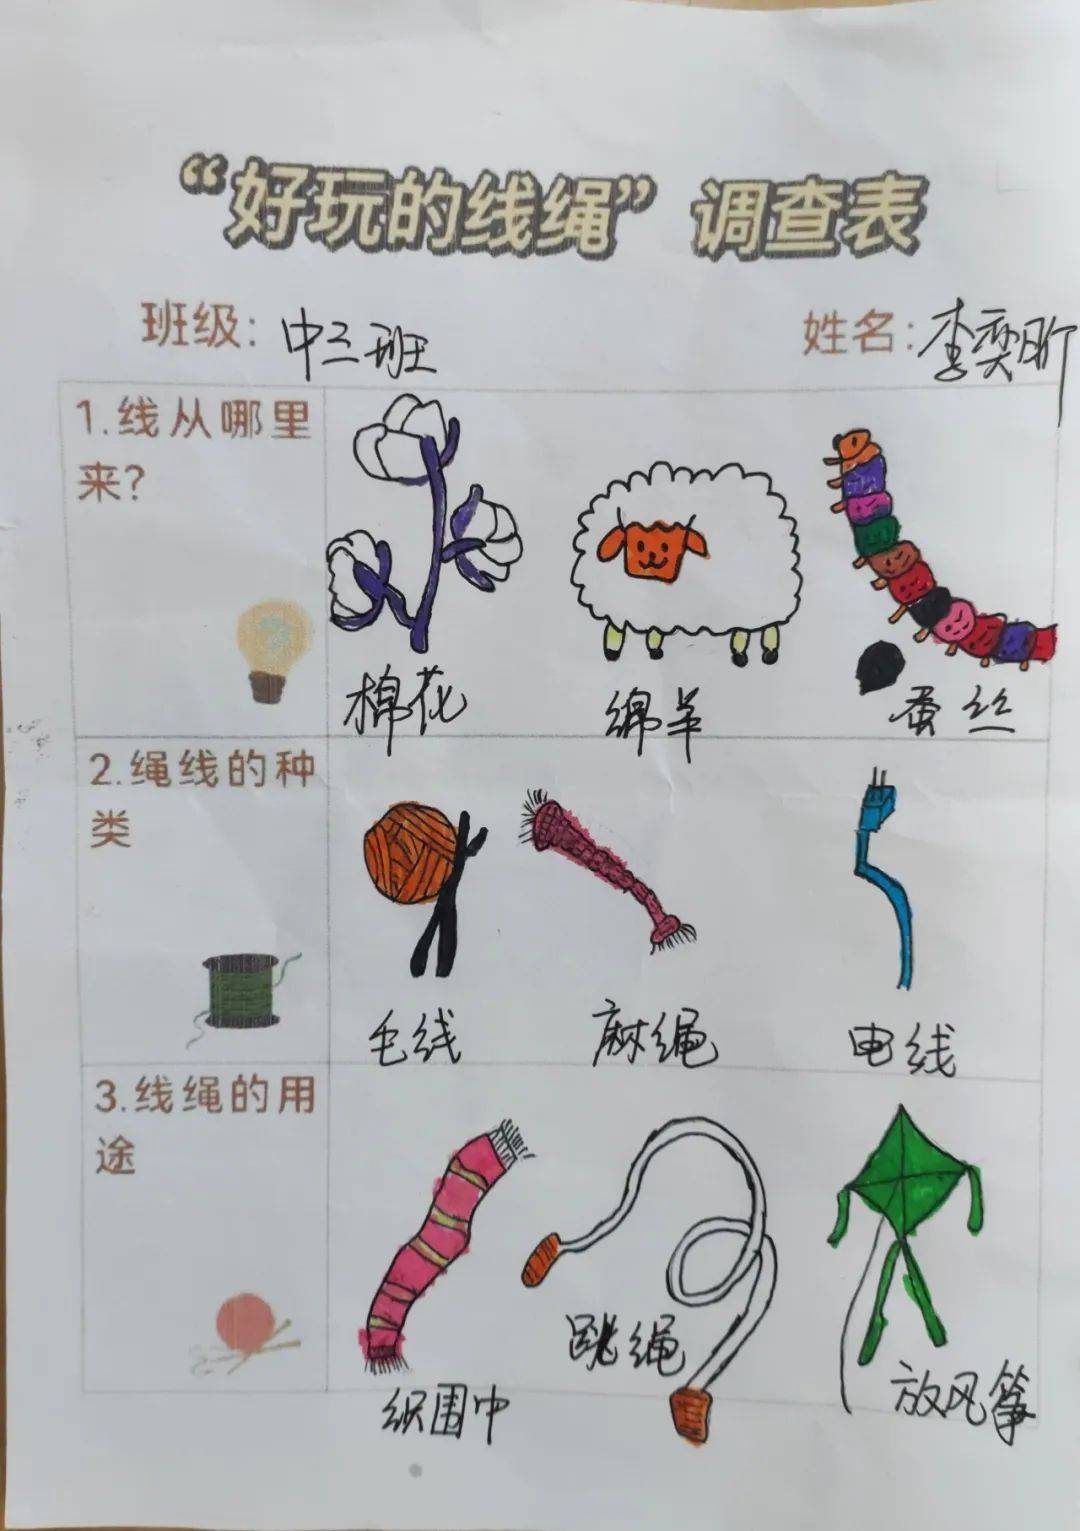 “好玩的线绳”调查表
班级：中三班 姓名：李奕昕
1.线从哪里
来？
棉花 绵羊 蚕丝
2.绳线的种
类
毛线 麻绳 电线
3.线绳的用
途
跳绳
织围巾 放风筝